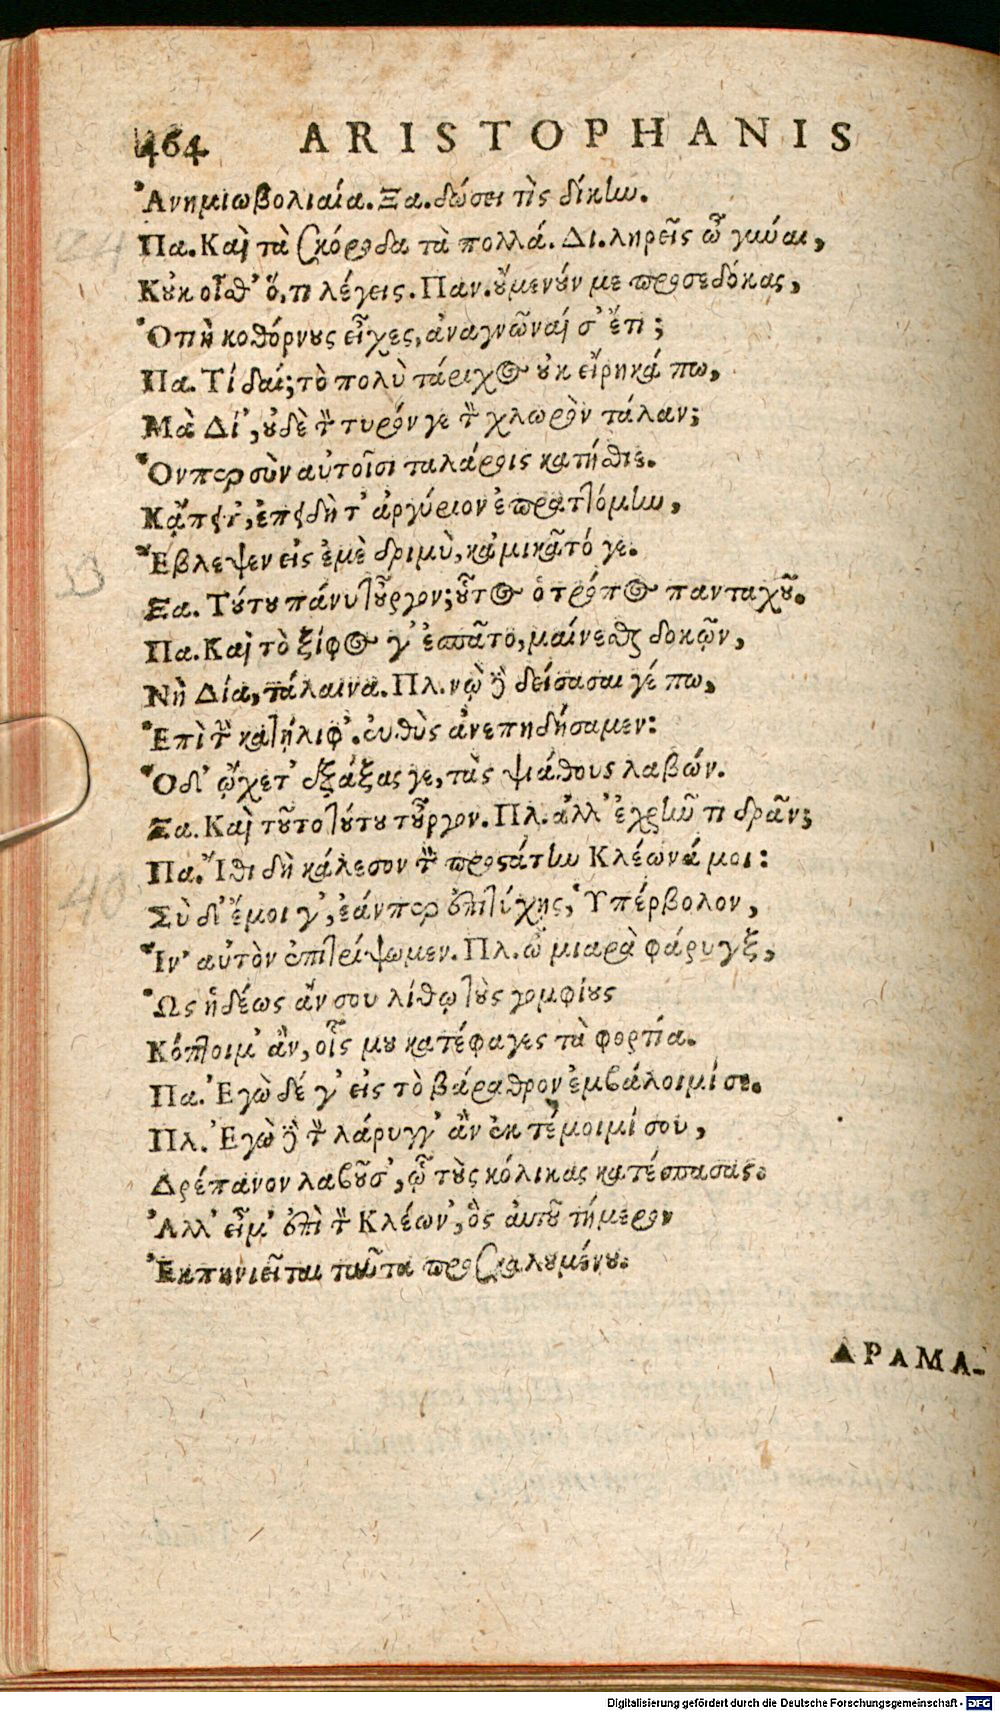 464 ARISTOPHANIS
Ἀνημιωβολιαία. Ξα. δώσει τὶς δίκην.
Πα. Καὶ τὰ σκόροδα τὰ πολλά. Δι. ληρεῖς ὦ γύναι,
Κοὐκ οἶσθ' ὅ, τι λέγεις. Παν. οὔμενούν με προσεδόκας,
Ὁπὴ κοθόρνους εἶχες, ἀναγνῶναί σ' ἔτι;
Πα. Τί δαί; τὸ πολὺ τάριχος οὐκ εἴρηκά πω,
Μὰ Δί', οὐδὲ τὸν τυρόν γε τὸν χλωρὸν τάλαν;
Ὅνπερ σὺν αὐτοῖσι ταλάροις κατήσθιε.
Κᾄπειτ', ἐπειδὴ τ' ἀργύριον ἐπραττόμην,
Ἔβλεψεν εἰς ἐμὲ δριμὺ, κἀμικᾶτό γε.
Ξα. Τούτου πάνυ τοὖργον; οὗτος ὁ τρόπος πανταχοῦ.
Πα. Καὶ τὸ ξίφος γ' ἐσπᾶτο, μαίνεσθαι δοκῶν,
Νὴ Δία, τάλαινα. Πλ. νῲ δὲ δείσασαι γέ πω,
Ἐπὶ τὴν κατήλιφ'. εὐθὺς ἀνεπηδήσαμεν:
Ὁδ' ᾤχετ' ἐξάξας γε, τὰς ψιάθους λαβών.
Ξα. Καὶ τοῦτο τούτου τοὖργον. Πλ. ἀλλ' ἐχρῆν τι δρᾶν;
Πα. Ἴθι δὴ κάλεσον τὸν προστάτην Κλέωνά μοι:
Σὺ δ' ἔμοι γ', ἐάνπερ ἐπιτύχης, Ὑπέρβολον,
Ἵν' αὐτὸν ἐπιτρίψωμεν. Πλ. ὦ μιαρὰ φάρυγξ,
Ὡς ἡδέως ἄν σου λίθῳ τοὺς γομφίους
Κόπτοιμ' ἂν, οἷς μου κατέφαγες τὰ φορτία.
Πα. Ἐγὼ δέ γ' εἰς τὸ βάραθρον ἐμβάλοιμί σε.
Πλ. Ἐγὼ δὲ τὸν λάρυγγ' ἂν ἐκ τέμοιμί σου,
Δρέπανον λαβοῦσ', ᾧ τοὺς κόλικας κατέσπασας.
Ἀλλ' εἶμ' ἐπὶ τὸν Κλέων', ὃς αὐτοῦ τήμερον
Ἐκπηνιεῖται ταῦτα προσκαλουμένου.
ΔΡΑΜΑ-
33
40
Digitalisierung gefördert durch die Deutsche Forschungsgemeinschaft - DFG